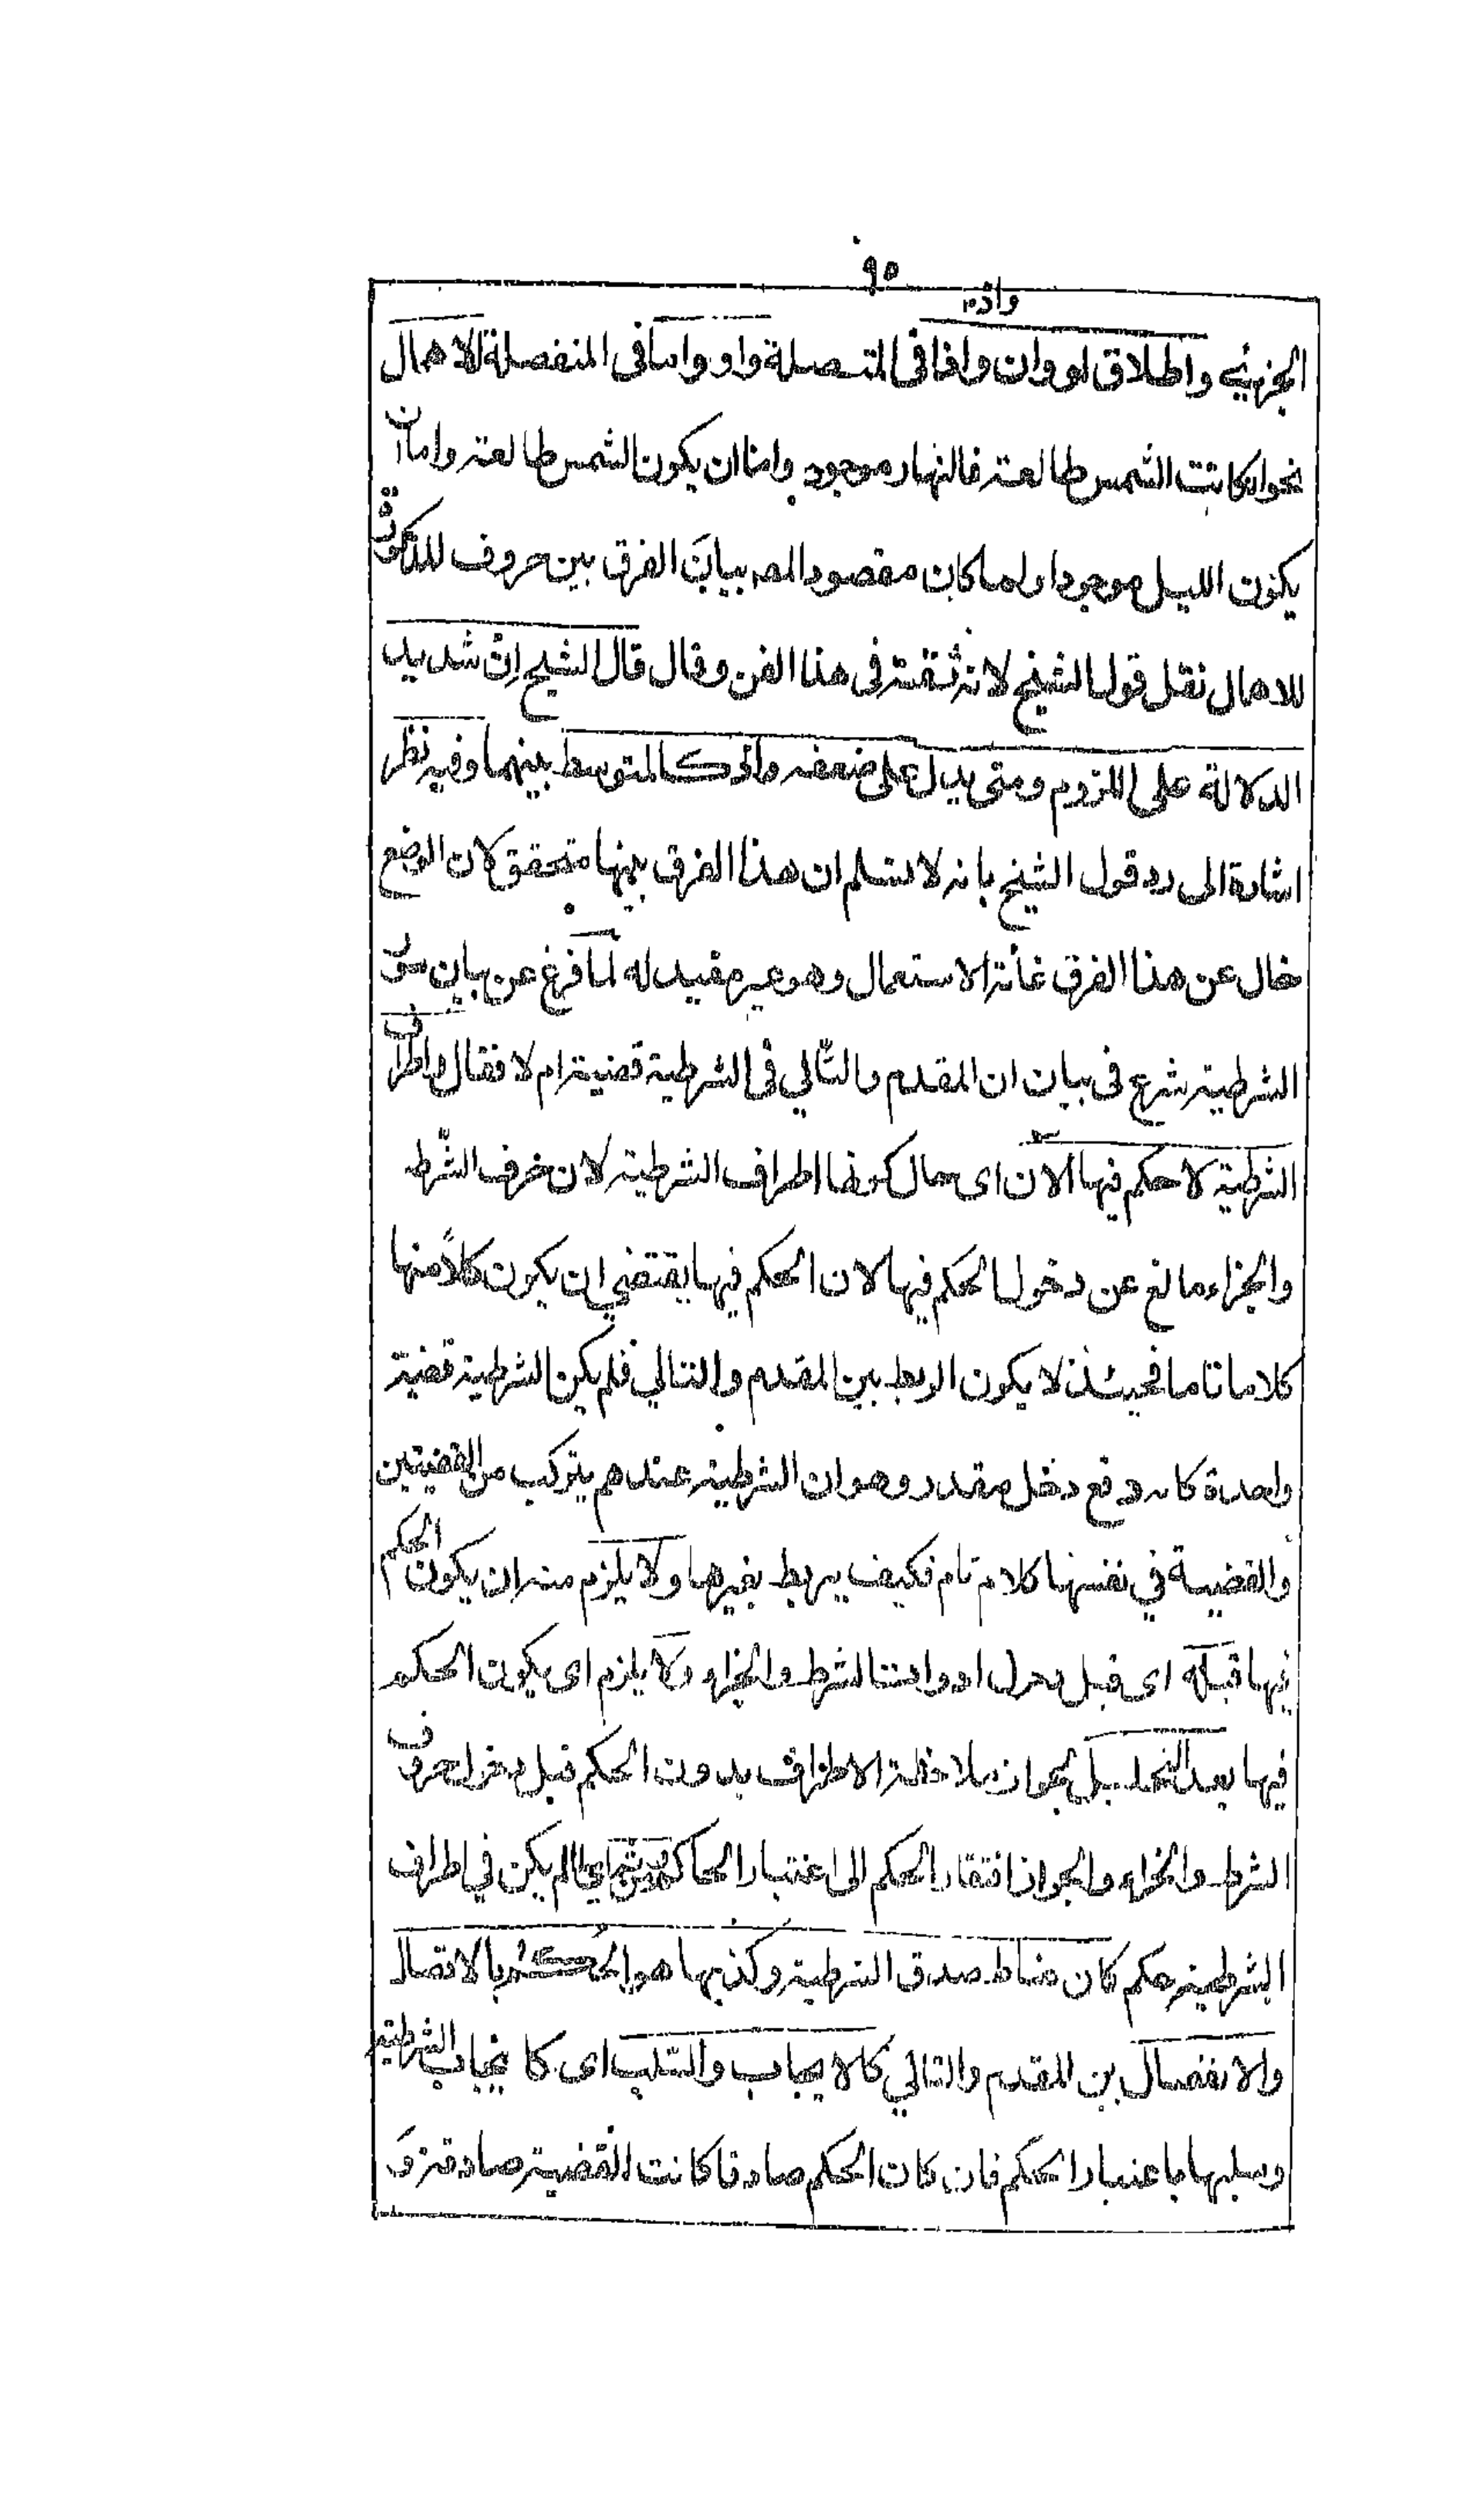 ٩٥
واذ
الجزئي واطلاق لو وان واذا فى المتصلة واو واما فى المنفصلة للاهمال
نحو ان كانت الشمس طالعة فالنهار موجود واما ان يكون الشمس طالعة واما ان
يكون الليل موجودا ولما كان مقصود المصـ بيان الفرق بين حروف المذكورة
للاهمال نقل قول الشيخ لانه ثقة فى هذا الفن وقال قال الشيخ ان شديد
الدلالة على اللزوم ومتى يدل على ضعفه واذ كالمتوسط بينهما وفيه نظر
اشارة الى رد قول الشيخ بانه لا نسلم ان هذا الفرق بينها متحقق لان الوضع
خال عن هذا الفرق غاية الاستعمال وهو غير مفيد له لما فرغ عن بيان سور
الشرطية شرع فى بيان ان المقدم والتالي فى الشرطية قضية ام لا فقال واطراف
الشرطية لا حكم فيها الان اى حال كونها اطراف الشرطية لان حرف الشرط
والجزاء مانع عن دخول الحكم فيها لان الحكم فيها يقتضي ان يكون كلا منها
كلاما تاما فحينئذ لا يكون الربط بين المقدم والتالي فلم يكن الشرطية قضية
واحدة كانه دفع دخل مقدر وهو ان الشرطية عندهم يتركب من القضيتين
والقضية في نفسها كلام تام فكيف يربط بغيرها ولا يلزم منه ان يكون الحكم
فيها قبله اى قبل دخول ادوات الشرط والجزاء ولا يلزم اى يكون الحكم
فيها بعد التحليل بل لجواز ملاحظة الاطراف بدون الحكم قبل دخول حروف
الشرط والجزاء والجواز افتقار الحكم الى اعتبار الحاكم ومن ثم اى لما لم يكن في اطراف
الشرطية حكم كان مناط صدق الشرطية وكذبها هو الحكم بالاتصال
والانفصال بين المقدم والتالي كالايجاب والسلب اى كايجاب الشرطية
وسلبها باعتبار الحكم فان كان الحكم صادقا كانت القضية صادقة و